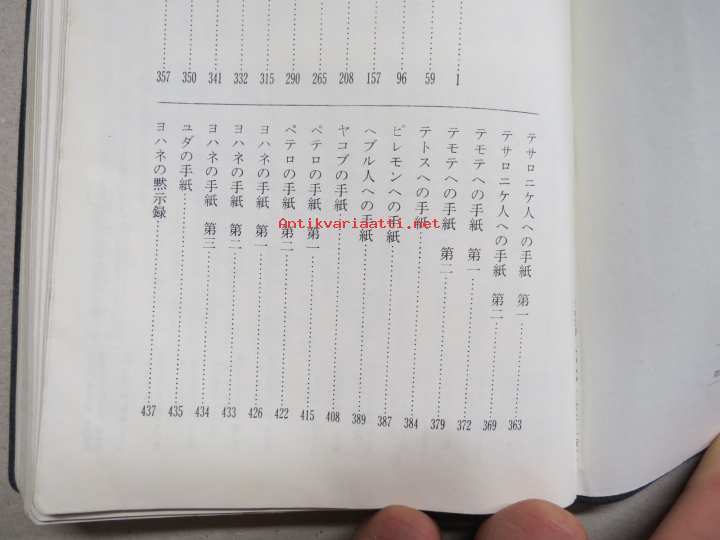 1
59
96
157
208
265
290
315
332
341
350
357
テサロニケ人への手紙 第一 363
テサロニケ人への手紙 第二 369
テモテへの手紙 第一 372
テモテへの手紙 第二 379
テトスへの手紙 384
ピレモンへの手紙 387
ヘブル人への手紙 389
ヤコブの手紙 408
ペテロの手紙 第一 415
ペテロの手紙 第二 422
ヨハネの手紙 第一 426
ヨハネの手紙 第二 433
ヨハネの手紙 第三 434
ユダの手紙 435
ヨハネの黙示録 437
Antikvariaatti.net